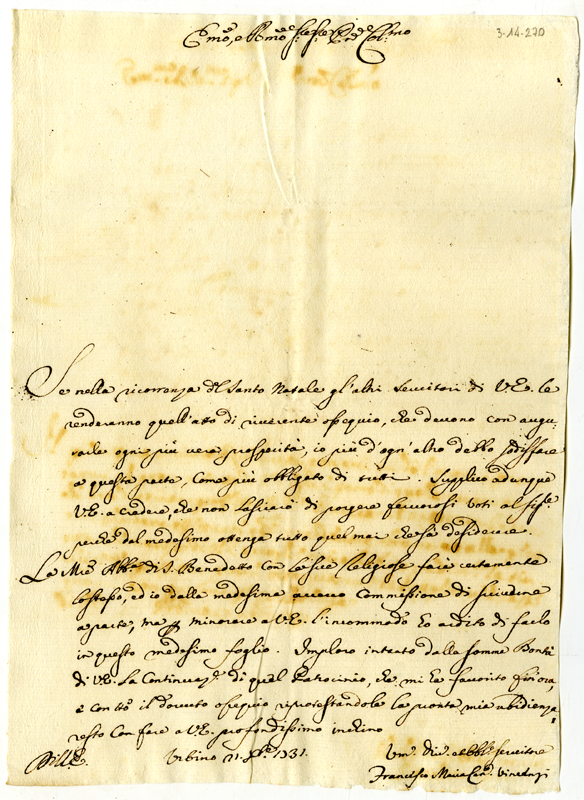 3-14-270
Emo, e Rmo Sig.e Sig.e Prõn Col:mo
Se nella ricorrenza del Santo Natale gl'altri Servitori di V.E. le
renderanno quell'atto di riverente ossequio, che devono con augu-
rarle ogni più vera prosperità, io più d'ogn'altro debbo sodisfare
a questa parte, come più obbligato di tutti. Supplico adunque
V.E. a credere, che non lasciarò di porgere fervorosi voti al Sig.e
perche dal medesimo ottenga tutto quel mai che sà desiderare.
La Mre Abba di S. Benedetto con le sue Religiose farà certamente
lo stesso, ed io dalla medesima avevo commissione di scriverne
a parte, ma p minorare a V.E. l'incommodo ho ardito di farlo
in questo medesimo foglio. Imploro intanto dalla somma Bontà
di V.E. la Continuaz.e di quel Patrocinio, che mi ha favorito finora,
e con tto il dovuto ossequio ripresentandole la pronta mia ubidienza
resto con fare a V.E. profondissimo inchino
Urbino 21. Xbre 1731.
Um. Div. et obblo Servitore
Francesco Maria Can.